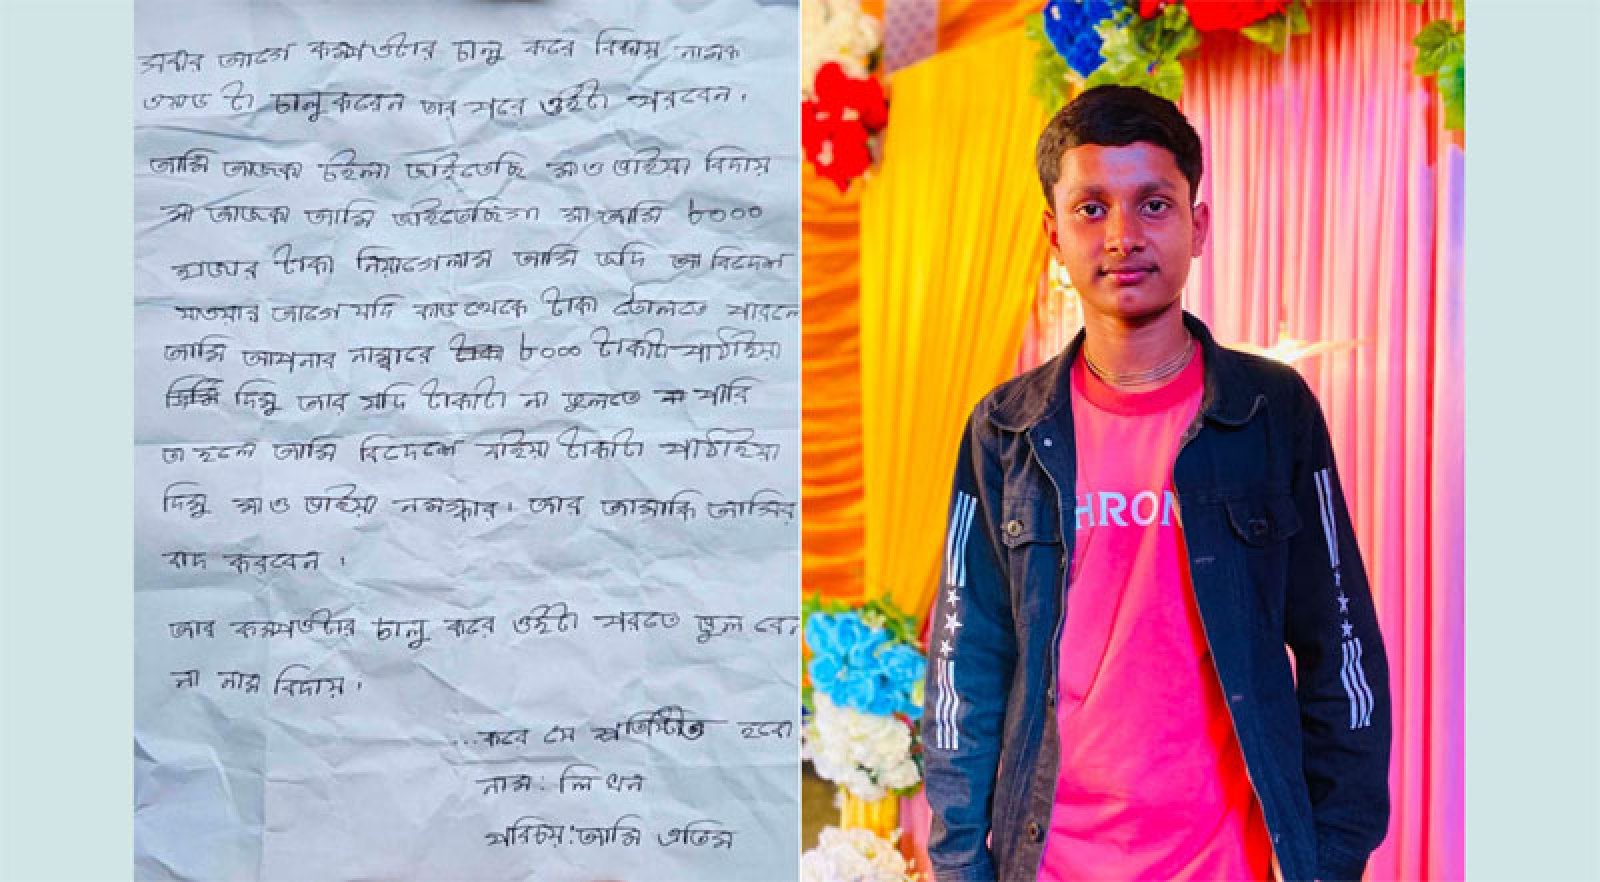 সবার আগে কম্পিউটার চালু করে বিদায় নামক
ওয়াড টা চালু করবেন তার পরে ওইটা পরবেন।
আমি আজকা চইলা জাইতেছি মাও ভাইয়া বিদায়
মা আজকা আমি জাইতেছিগা মা আমি ৮০০০
হাজার টাকা নিয়াগেলাম আমি যদি বিদেশ
যাওয়ার আগে যদি কাড থেকে টাকা তোলতে পারলে
আমি আপনার নাম্বারে ৮০০০ টাকাটা পাঠাইয়া
দিমু আর যদি টাকাটা না তুলতে পারি
তা হলে আমি বিদেশে যাইয়া টাকাটা পাঠাইয়া
দিমু মাও ভাইয়া নমস্কার। আর
বাদ করবেন।
আর কম্পিউটার চালু করে ওইটা পরতে ভুল বেন
না নাম বিদায়।
...কবে সে হবো
নাম: লিখন
পরিচয়: আমি এতিম
HRON